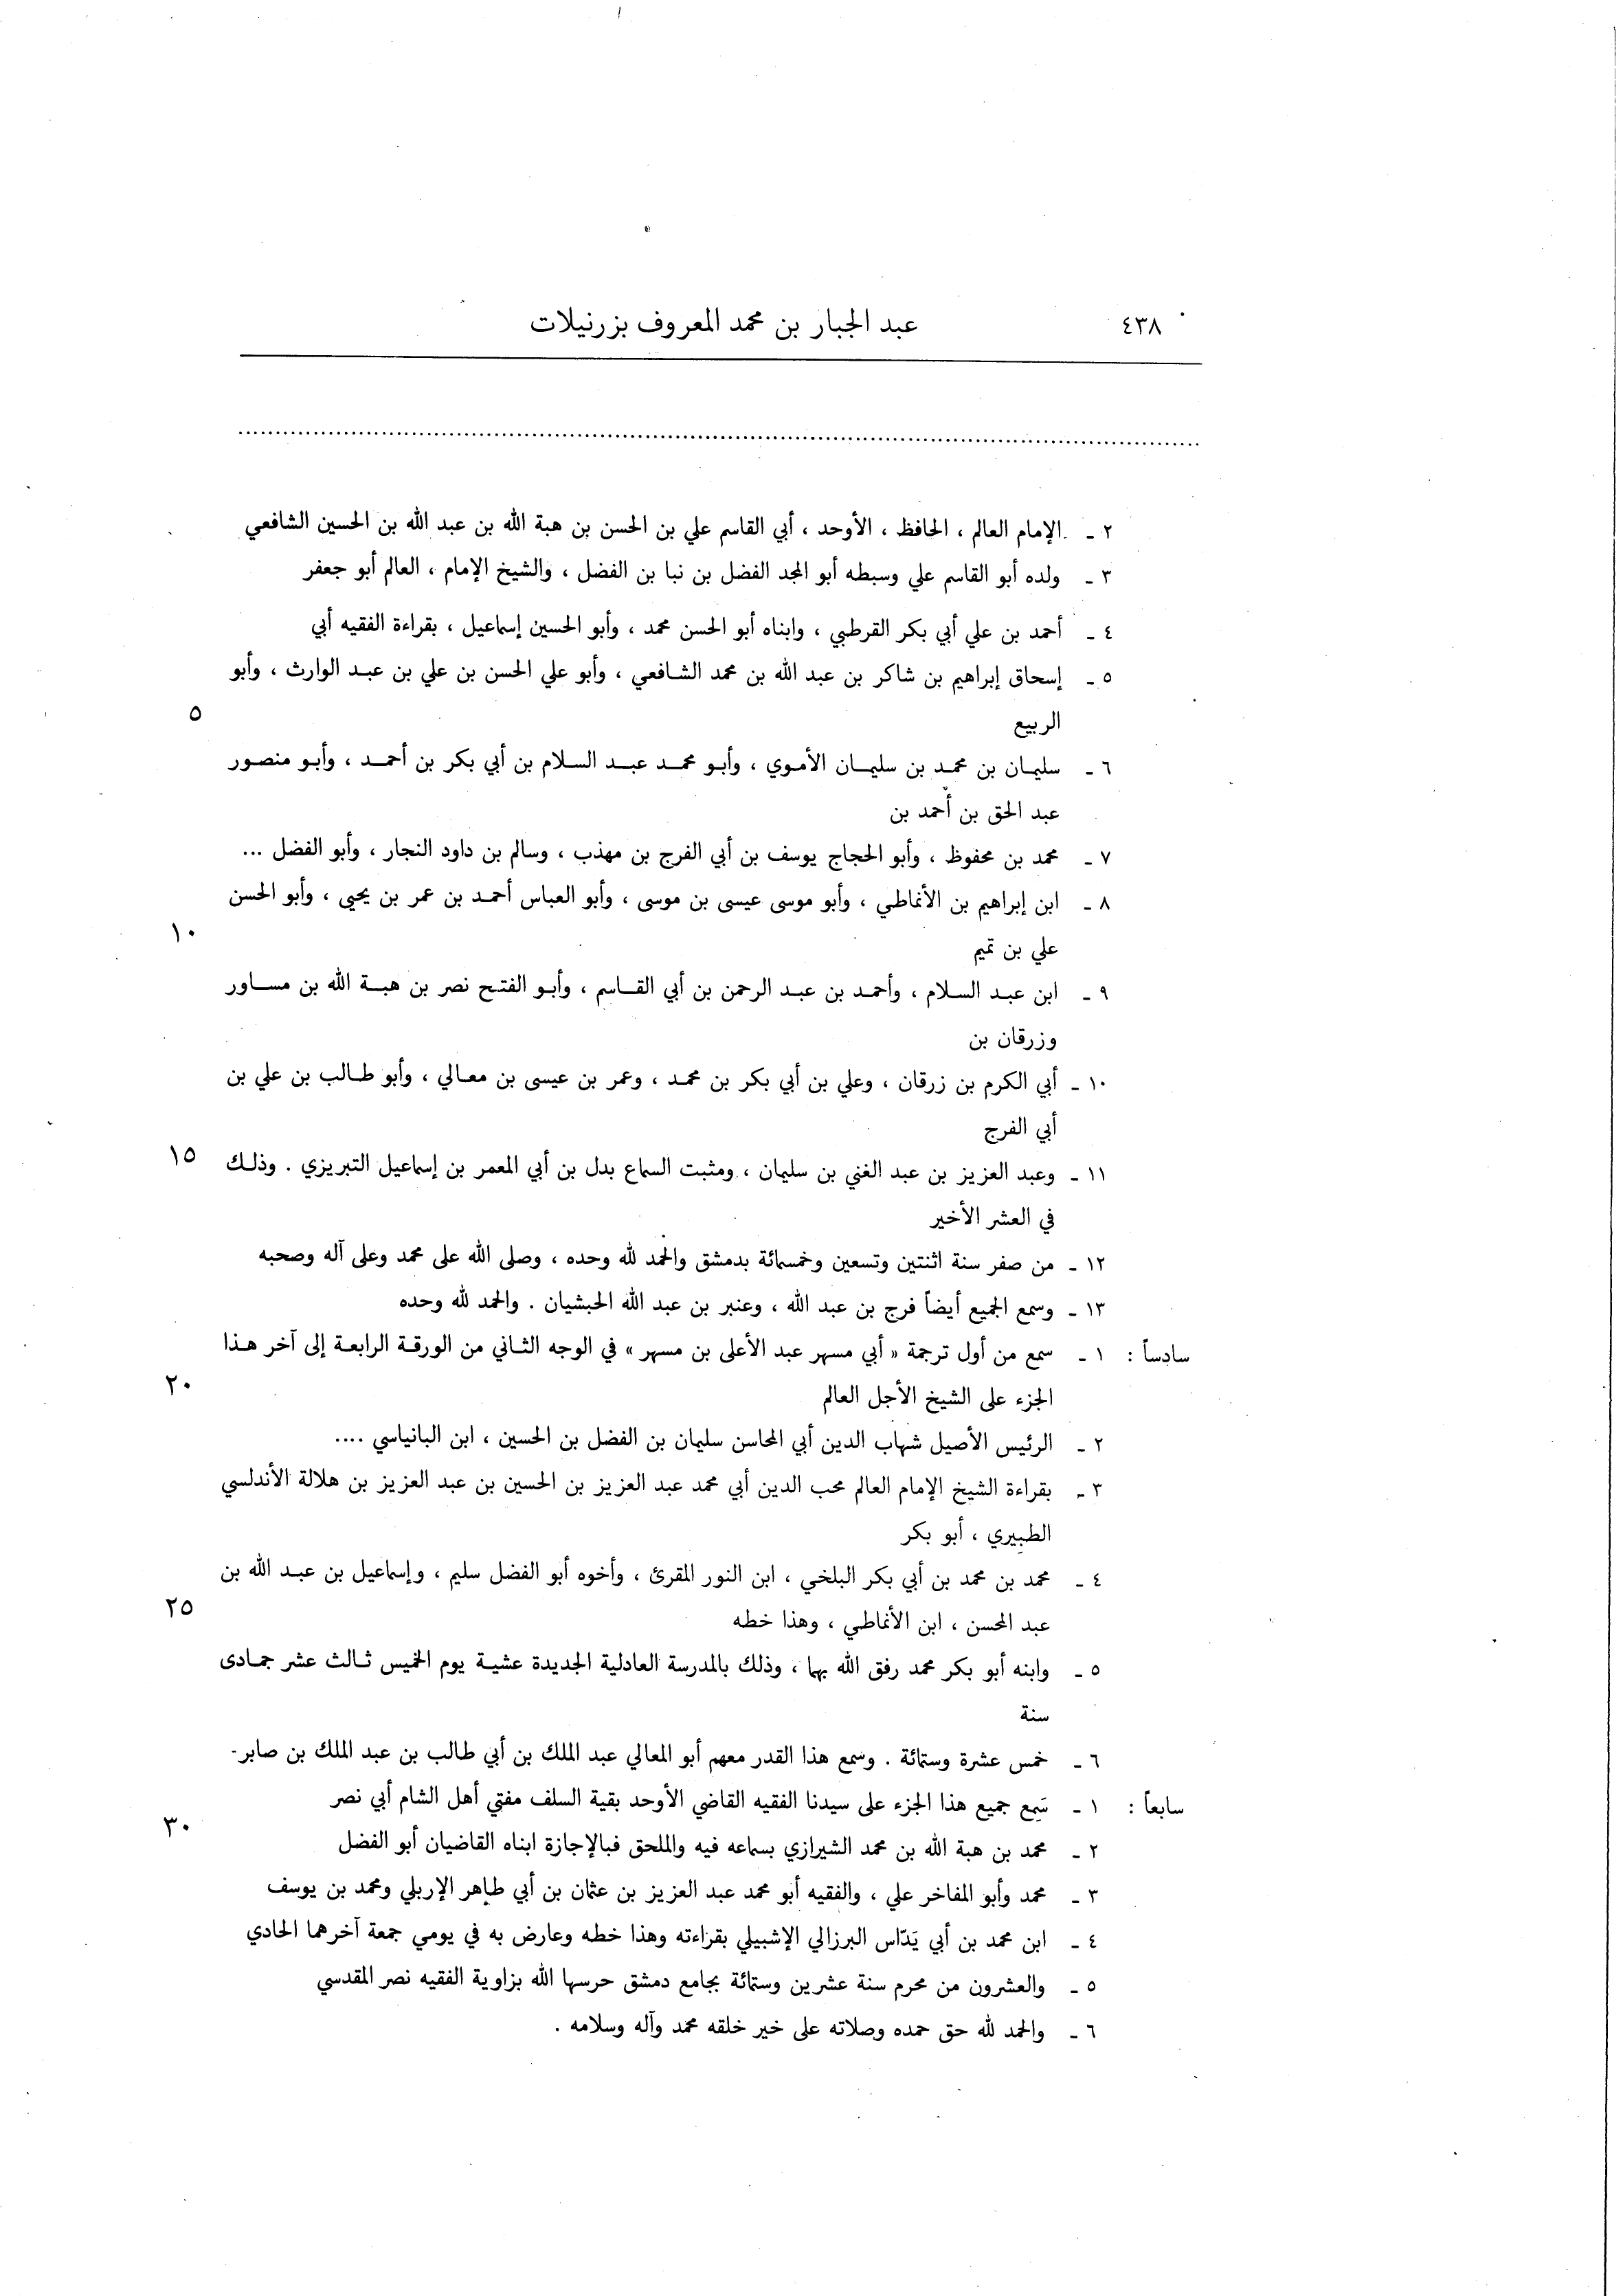 ٤٣٨
عبد الجبار بن محمد المعروف بزرنيلات
٢ ـ الإمام العالم ، الحافظ ، الأوحد ، أبي القاسم علي بن الحسن بن هبة الله بن عبد الله بن الحسين الشافعي
٣ ـ ولده أبو القاسم علي وسبطه أبو المجد الفضل بن نبا بن الفضل ، والشيخ الإمام ، العالم أبو جعفر
٤ ـ أحمد بن علي أبي بكر القرطبي ، وابناه أبو الحسن محمد ، وأبو الحسين إسماعيل ، بقراءة الفقيه أبي
٥ ـ إسحاق إبراهيم بن شاكر بن عبد الله بن محمد الشافعي ، وأبو علي الحسن بن علي بن عبد الوارث ، وأبو
الربيع
٥
٦ ـ سليمان بن محمد بن سليمان الأموي ، وأبو محمد عبد السلام بن أبي بكر بن أحمد ، وأبو منصور
عبد الحق بن أحمد بن
٧ ـ محمد بن محفوظ ، وأبو الحجاج يوسف بن أبي الفرج بن مهذب ، وسالم بن داود النجار ، وأبو الفضل ...
٨ ـ ابن إبراهيم بن الأنماطي ، وأبو موسى عيسى بن موسى ، وأبو العباس أحمد بن عمر بن يحيى ، وأبو الحسن
علي بن تميم
١٠
٩ ـ ابن عبد السلام ، وأحمد بن عبد الرحمن بن أبي القاسم ، وأبو الفتح نصر بن هبة الله بن مساور
وزرقان بن
١٠ ـ أبي الكرم بن زرقان ، وعلي بن أبي بكر بن محمد ، وعمر بن عيسى بن معالي ، وأبو طالب بن علي بن
أبي الفرج
١١ ـ وعبد العزيز بن عبد الغني بن سليمان ، ومثبت السماع بدل بن أبي المعمر بن إسماعيل التبريزي . وذلك
١٥
في العشر الأخير
١٢ ـ من صفر سنة اثنتين وتسعين وخمسمائة بدمشق والحمد لله وحده ، وصلى الله على محمد وعلى آله وصحبه
١٣ ـ وسمع الجميع أيضاً فرج بن عبد الله ، وعنبر بن عبد الله الحبشيان . والحمد لله وحده
سادساً : ١ ـ سمع من أول ترجمة « أبي مسهر عبد الأعلى بن مسهر » في الوجه الثاني من الورقة الرابعة إلى آخر هذا
الجزء على الشيخ الأجل العالم
٢٠
٢ ـ الرئيس الأصيل شهاب الدين أبي المحاسن سليمان بن الفضل بن الحسين ، ابن البانياسي ....
٣ ـ بقراءة الشيخ الإمام العالم محب الدين أبي محمد عبد العزيز بن الحسين بن عبد العزيز بن هلالة الأندلسي
الطبيري ، أبو بكر
٤ ـ محمد بن محمد بن أبي بكر البلخي ، ابن النور المقرئ ، وأخوه أبو الفضل سليم ، وإسماعيل بن عبد الله بن
عبد المحسن ، ابن الأنماطي ، وهذا خطه
٢٥
٥ ـ وابنه أبو بكر محمد رفق الله بهما ، وذلك بالمدرسة العادلية الجديدة عشية يوم الخميس ثالث عشر جمادى
سنة
٦ ـ خمس عشرة وستمائة . وسمع هذا القدر معهم أبو المعالي عبد الملك بن أبي طالب بن عبد الملك بن صابر-
سابعاً : ١ ـ سَمِع جميع هذا الجزء على سيدنا الفقيه القاضي الأوحد بقية السلف مفتي أهل الشام أبي نصر
٣٠
٢ ـ محمد بن هبة الله بن محمد الشيرازي بسماعه فيه والملحق فبالإجازة ابناه القاضيان أبو الفضل
٣ ـ محمد وأبو المفاخر علي ، والفقيه أبو محمد عبد العزيز بن عثمان بن أبي طاهر الإربلي ومحمد بن يوسف
٤ ـ ابن محمد بن أبي يَدّاس البرزالي الإشبيلي بقراءته وهذا خطه وعارض به في يومي جمعة آخرهما الحادي
٥ ـ والعشرون من محرم سنة عشرين وستمائة بجامع دمشق حرسها الله بزاوية الفقيه نصر المقدسي
٦ ـ والحمد لله حق حمده وصلاته على خير خلقه محمد وآله وسلامه .